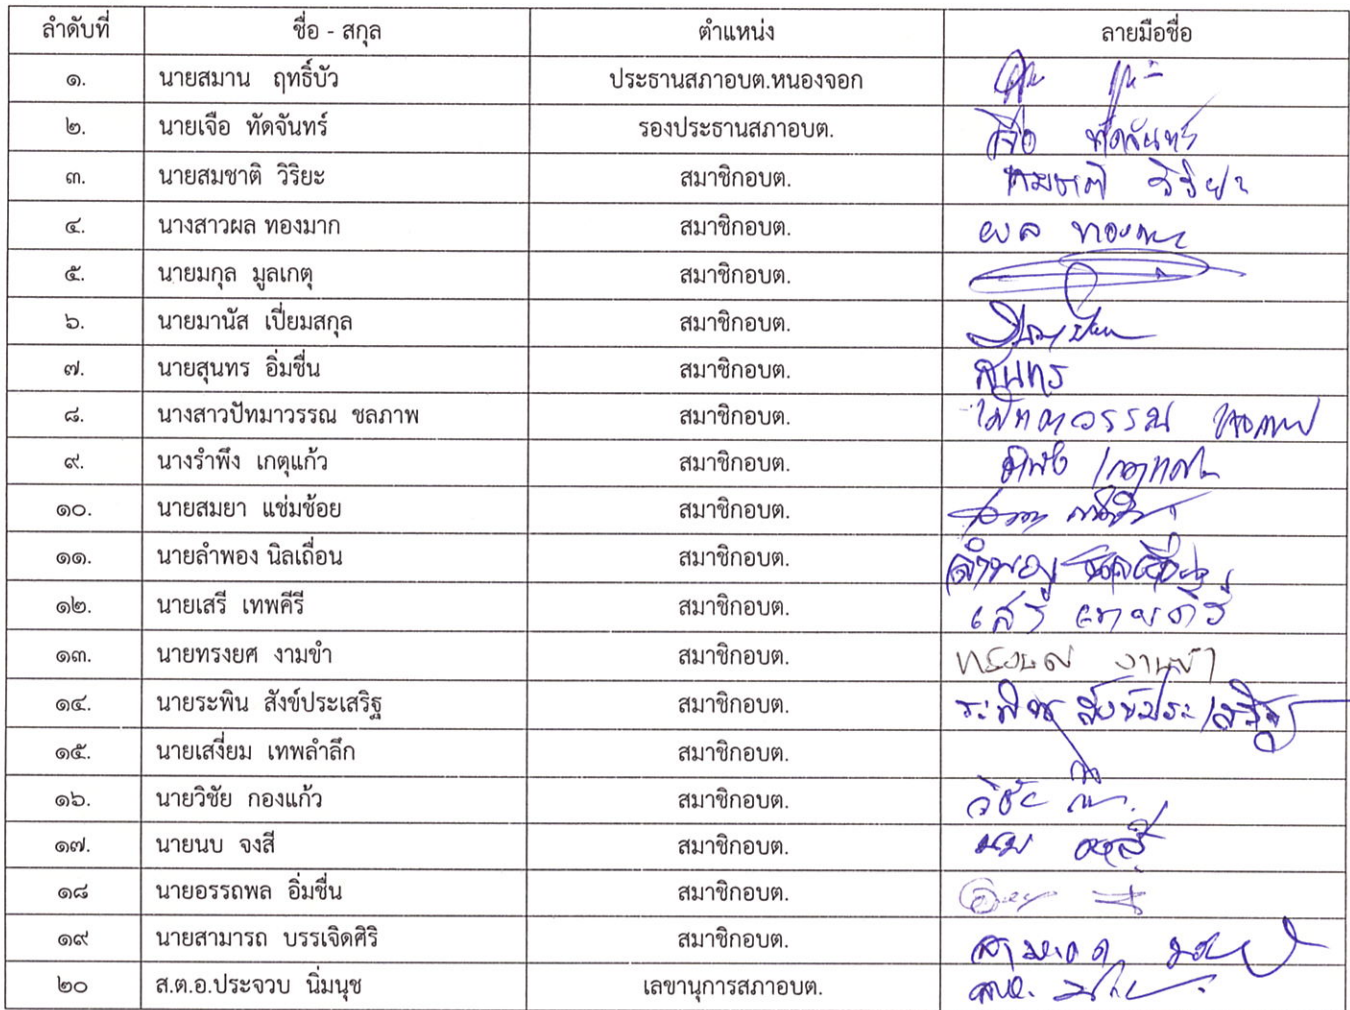 ลำดับที่ ชื่อ - สกุล ตำแหน่ง ลายมือชื่อ
๑. นายสมาน ฤทธิ์บัว ประธานสภาอบต.หนองจอก
๒. นายเจือ ทัดจันทร์ รองประธานสภาอบต. เจือ ทัดจันทร์
๓. นายสมชาติ วิริยะ สมาชิกอบต. สมชาติ วิริยะ
๔. นางสาวผล ทองมาก สมาชิกอบต. ผล ทองมาก
๕. นายมกุล มูลเกตุ สมาชิกอบต.
๖. นายมานัส เปี่ยมสกุล สมาชิกอบต.
๗. นายสุนทร อิ่มชื่น สมาชิกอบต. สุนทร
๘. นางสาวปัทมาวรรณ ชลภาพ สมาชิกอบต. ปัทมาวรรณ ชลภาพ
๙. นางรำพึง เกตุแก้ว สมาชิกอบต. รำพึง เกตุแก้ว
๑๐. นายสมยา แช่มช้อย สมาชิกอบต.
๑๑. นายลำพอง นิลเถื่อน สมาชิกอบต. ลำพอง นิลเถื่อน
๑๒. นายเสรี เทพคีรี สมาชิกอบต. เสรี เทพคีรี
๑๓. นายทรงยศ งามขำ สมาชิกอบต. ทรงยศ งามขำ
๑๔. นายระพิน สังข์ประเสริฐ สมาชิกอบต. ระพิน สังข์ประเสริฐ
๑๕. นายเสงี่ยม เทพลำลึก สมาชิกอบต.
๑๖. นายวิชัย กองแก้ว สมาชิกอบต. วิชัย
๑๗. นายนบ จงสี สมาชิกอบต. นบ จงสี
๑๘ นายอรรถพล อิ่มชื่น สมาชิกอบต.
๑๙ นายสามารถ บรรเจิดศิริ สมาชิกอบต. สามารถ
๒๐ ส.ต.อ.ประจวบ นิ่มนุช เลขานุการสภาอบต.